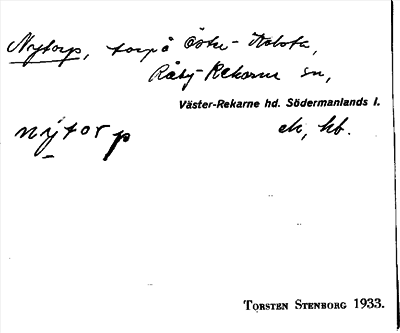 Nytorp, torp å Öster-
Råby-Rekarne sn,
Väster-Rekarne hd. Södermanlands l.
nytorp ek, hb.
TORSTEN STENBORG 1933.